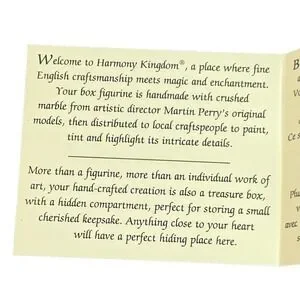 Welcome to Harmony Kingdom®, a place where fine
English craftsmanship meets magic and enchantment.
Your box figurine is handmade with crushed
marble from artistic director Martin Perry's original
models, then distributed to local craftspeople to paint,
tint and highlight its intricate details.
More than a figurine, more than an individual work of
art, your hand-crafted creation is also a treasure box,
with a hidden compartment, perfect for storing a small
cherished keepsake. Anything close to your heart
will have a perfect hiding place here.
Ce s
Plu
avec